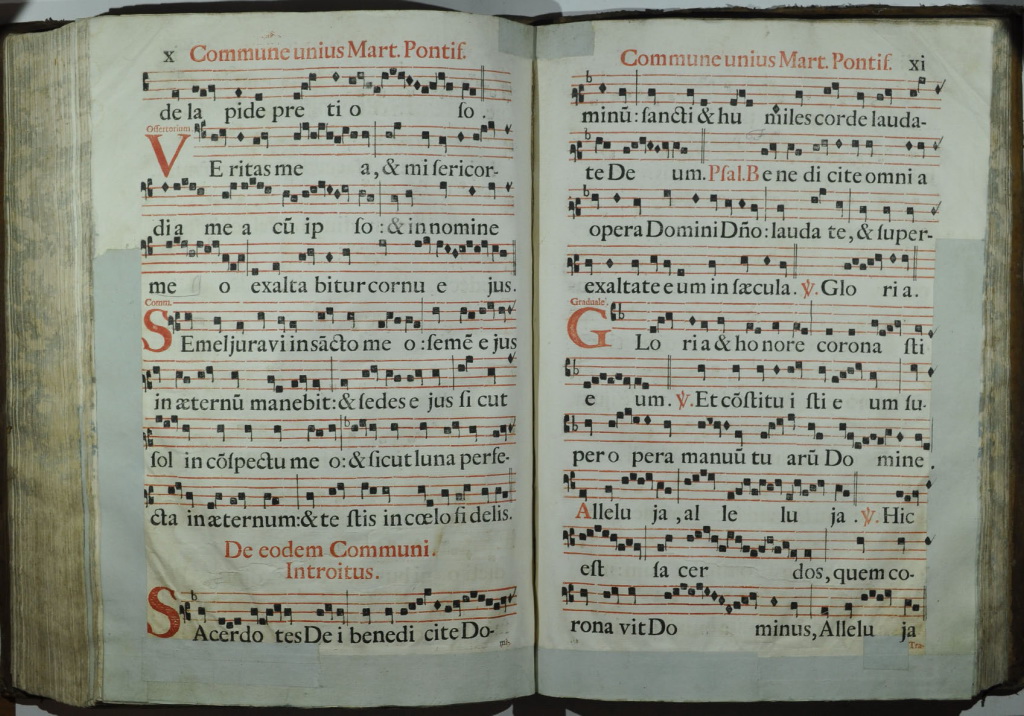 x Commune unius Mart. Pontif.
de la pide pre ti o so.
Offertorium.
VEritas me a, & mi sericor-
di a me a cũ ip so : & in nomine
me o exalta bitur cornu e jus.
Comm.
SEmel juravi in sãcto me o : semẽ e jus
in æternũ manebit: & sedes e jus si cut
sol in cõspectu me o: & sicut luna perfe-
cta in æternum: & te stis in cœlo fi delis.
De eodem Communi.
Introitus.
SAcerdo tes De i benedi cite Do-
xi Commune unius Mart. Pontif.
minũ: sancti & hu miles corde lauda-
te De um. Psal. Be ne di cite omni a
opera Domini Dño: lauda te, & super-
exaltate e um in sæcula. ℣. Glo ri a.
Graduale.
GLo ri a & ho nore corona sti
e um. ℣. Et cõstitu i sti e um su-
per o pera manuũ tu arũ Do mine.
Allelu ja, al le lu ja. ℣. Hic
est sa cer dos, quem co-
rona vit Do minus, Allelu ja
Tra-